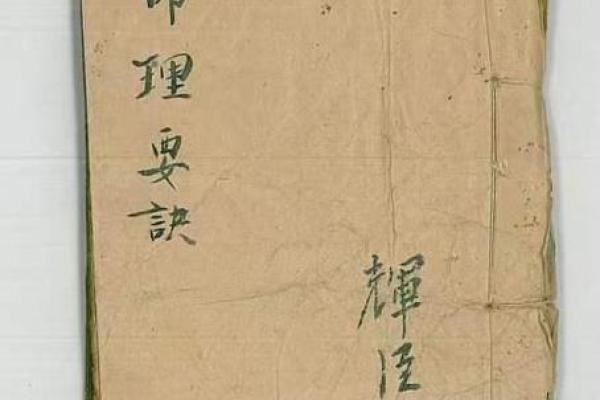 命理要訣
輝